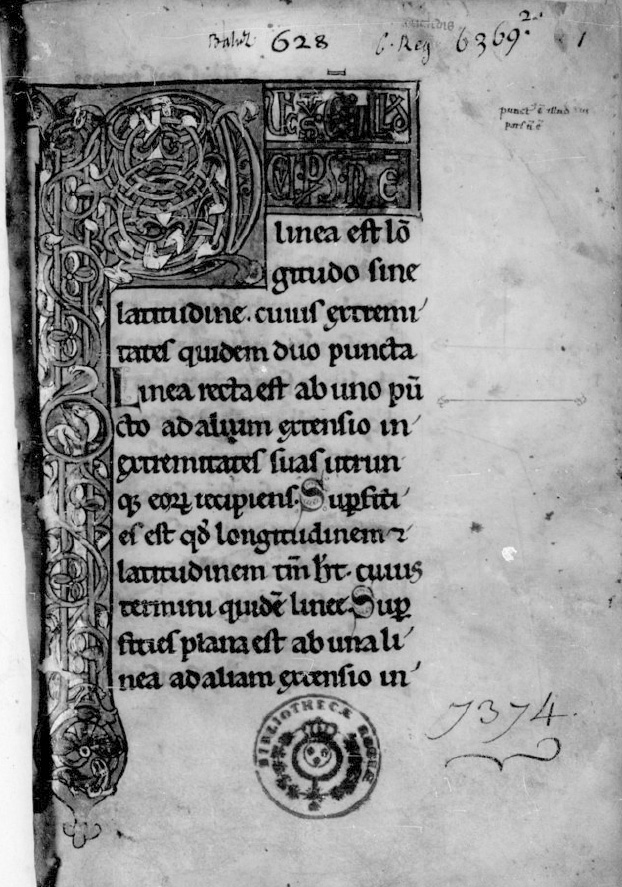 Baluz 628 C. Reg 6369.2. 1
punct᷒ ē illud cui
pars ñ ē
PUNCTUS EST ILLUD
CUI PS N̄ Ē
linea est lō
gitudo sine
latitudine. cuius extremi
tates quidem duo puncta
Linea recta est ab uno pū
cto ad alium extensio in
extremitates suas utrun
qꝫ eoꝝ recipiens. Suꝑfiti
es est qđ longitudinem ⁊
latitudinem tm̄ ħt. cuius
termini quidē linee. Suꝑ
fities plana est ab una li
nea ad aliam extensio in
7374.
BIBLIOTHECÆ REGIÆ